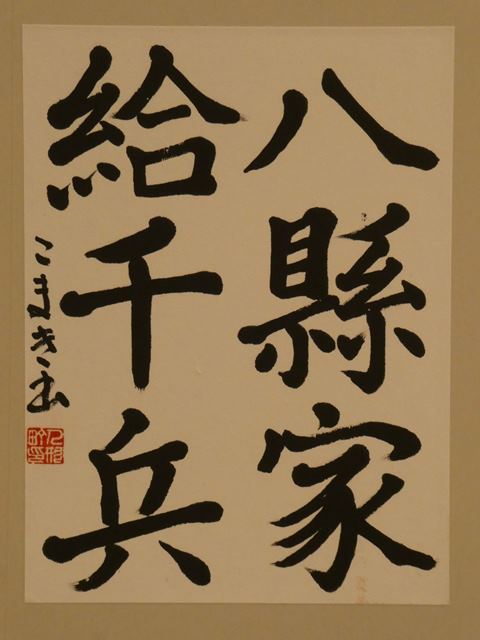 八縣家
給千兵
こまき書